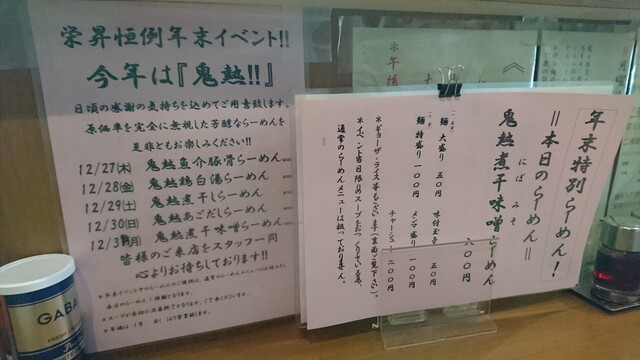 栄昇恒例年末イベント!!
今年は『鬼熱!!』
日頃の感謝の気持ちを込めてご用意致します。
原価率を完全に無視した芳醇ならーめんを
是非ともお楽しみください!!
12/27(木) 鬼熱魚介豚骨らーめん
12/28(金) 鬼熱鶏白湯らーめん
12/29(土) 鬼熱煮干しらーめん
12/30(日) 鬼熱あごだしらーめん
12/31(月) 鬼熱煮干味噌らーめん
皆様のご来店をスタッフ一同
心よりお待ちしております!!
年末特別らーめん!
=本日のらーめん=
にぼ みそ
鬼熱煮干味噌らーめん
六〇〇円
麺 大盛り 五〇円
麺 特盛り 一〇〇円
味付玉子 五〇円
メンマ盛り 一〇〇円
チャーシュー 二〇〇円
*ギョーザ・ライス等もございます(裏面ご覧下さい)。
*イベント当日限りのスープをおつくりしている為、
通常のらーめんメニューは扱っておりません。
*午後
GABAN